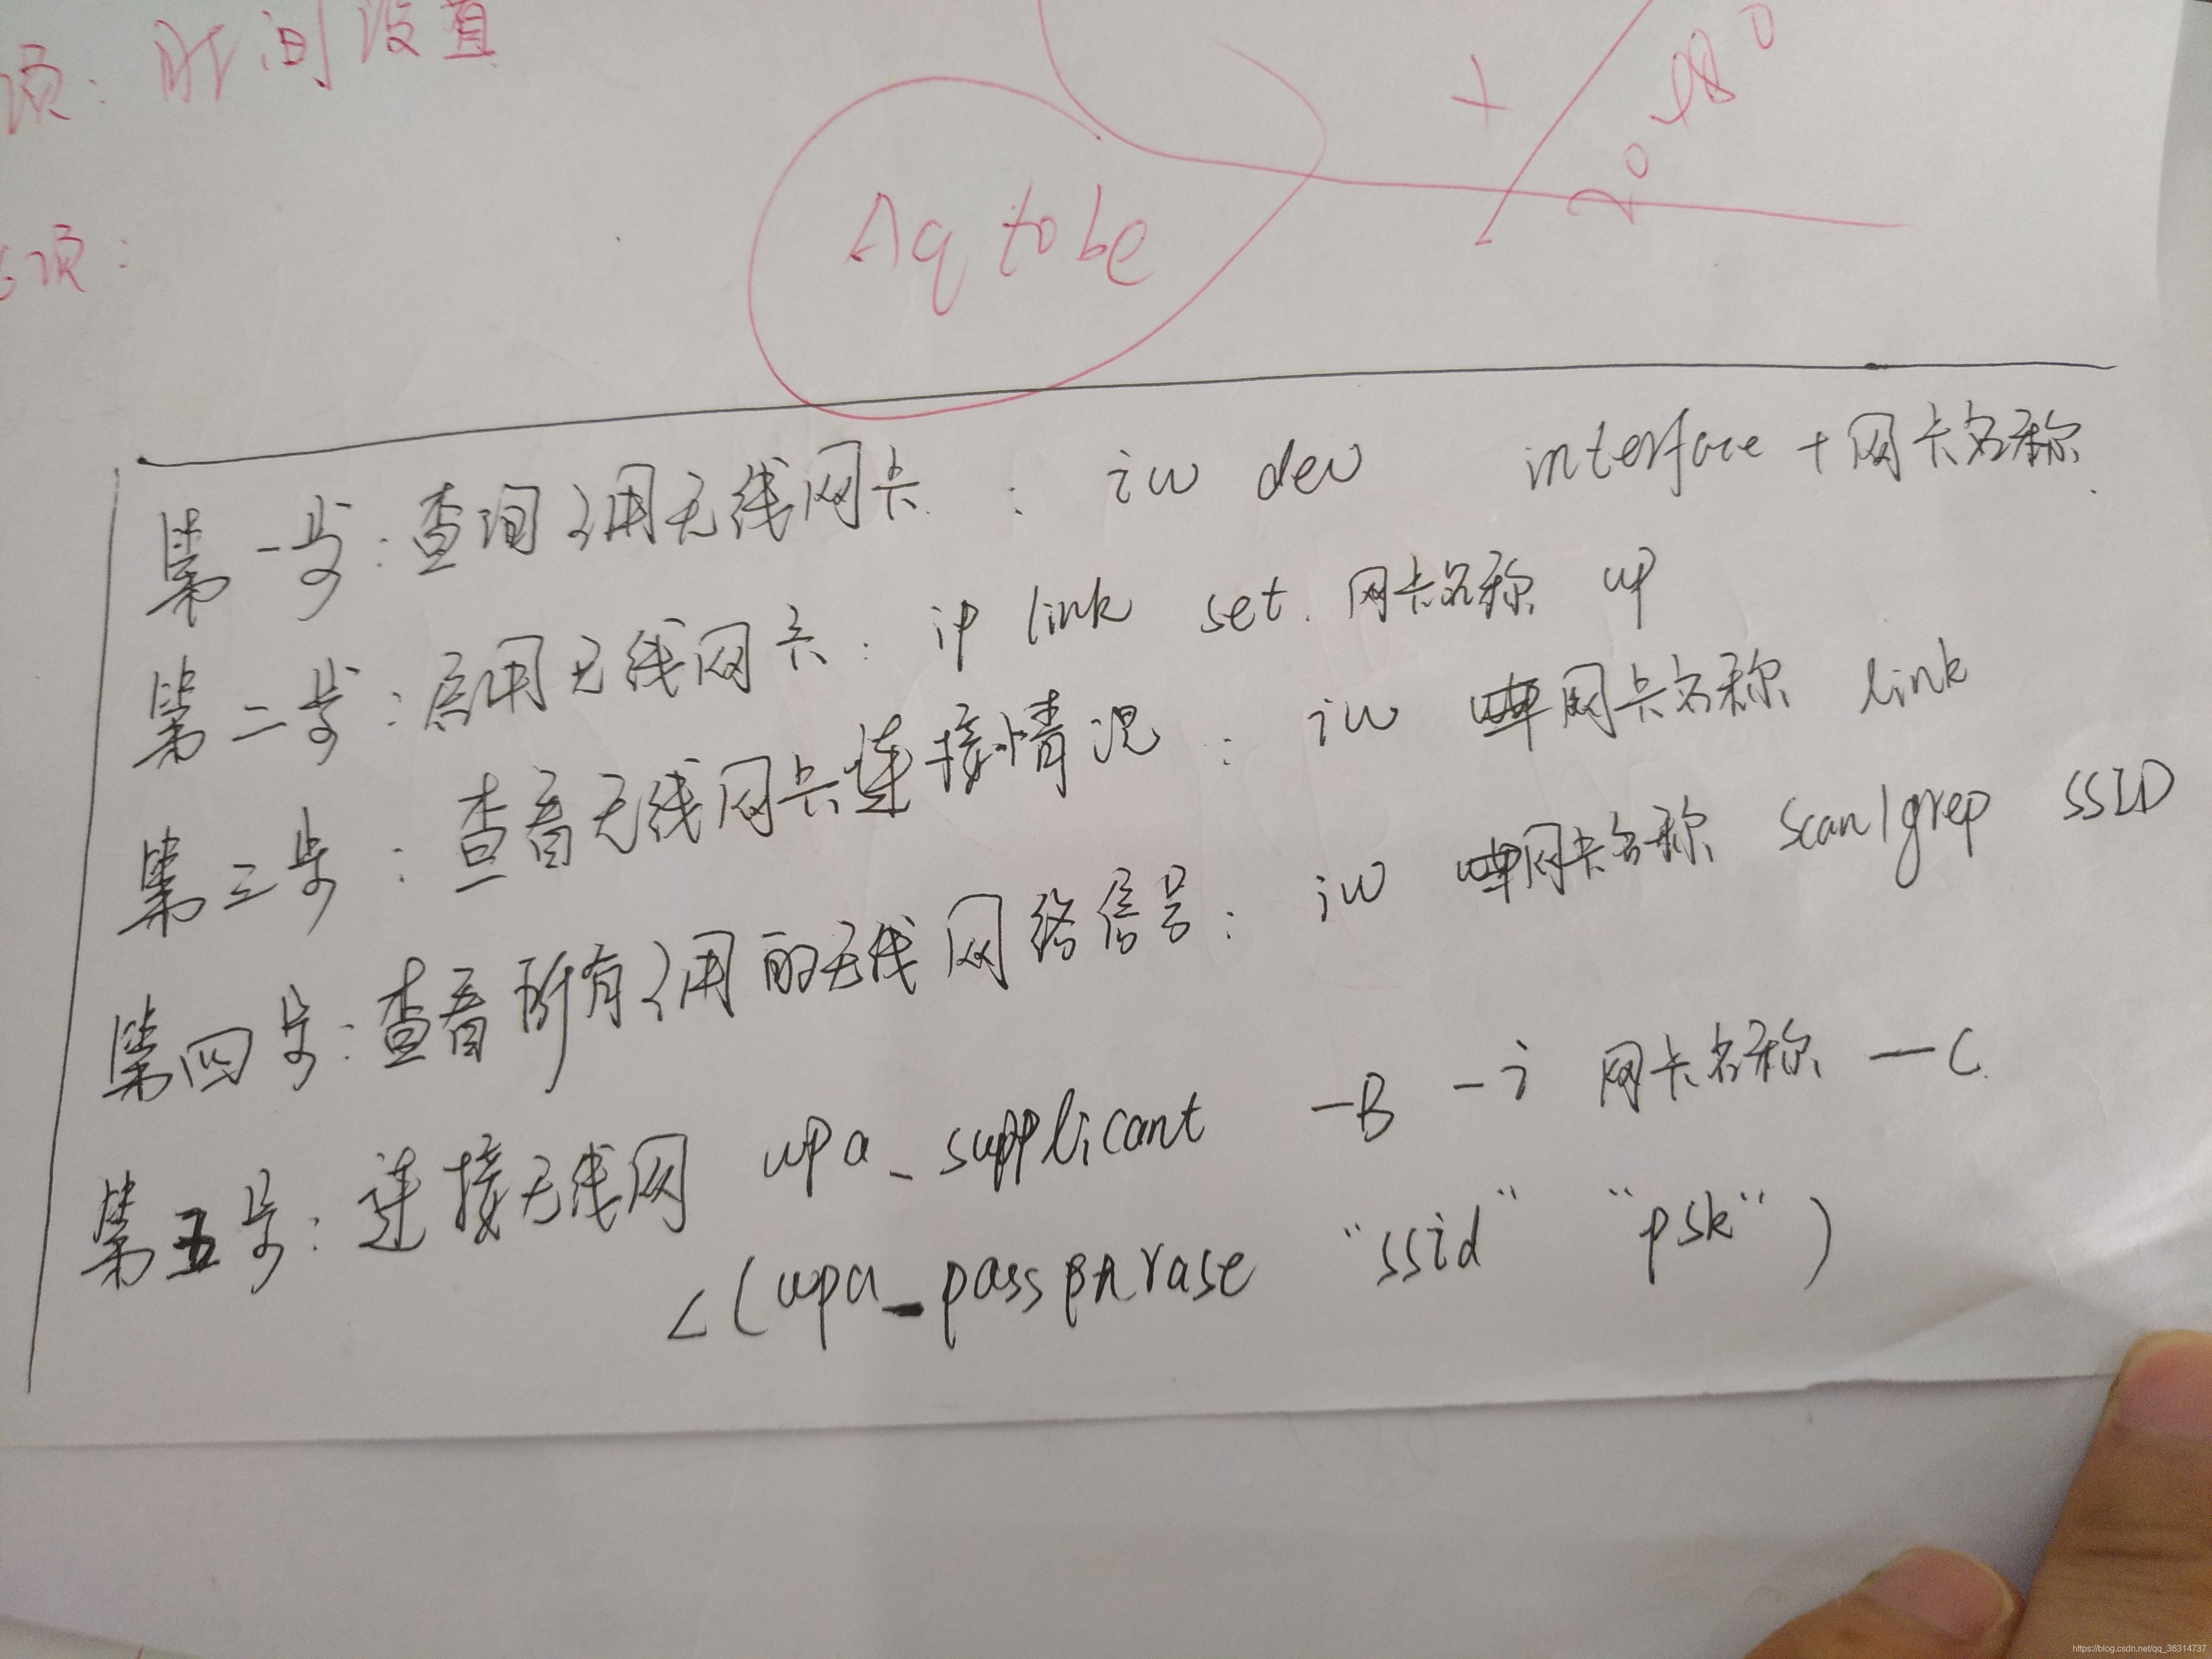 项：时间设置
项：
Aq tobe
+
20480
第一步：查询可用无线网卡：iw dev interface + 网卡名称.
第二步：启用无线网卡：ip link set 网卡名称 up
第三步：查看无线网卡连接情况：iw 网卡名称 link
第四步：查看所有可用的无线网络信号：iw 网卡名称 scan|grep SSID
第五步：连接无线网 wpa_supplicant -B -i 网卡名称 -c
<(wpa_passphrase "ssid" "psk")
https://blog.csdn.net/qq_36314737